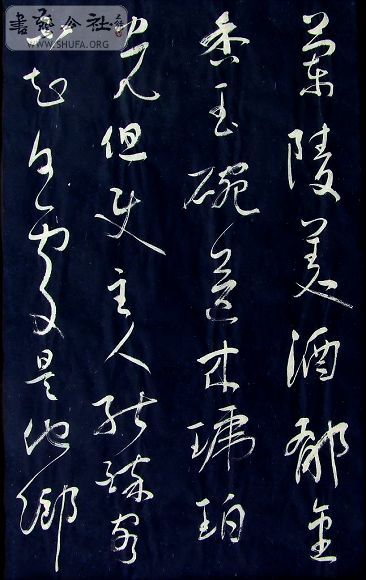 WWW.SHUFA.ORG
蘭陵美酒郁金
香玉碗盛来琥珀
光但使主人能醉客
不知何處是他鄉